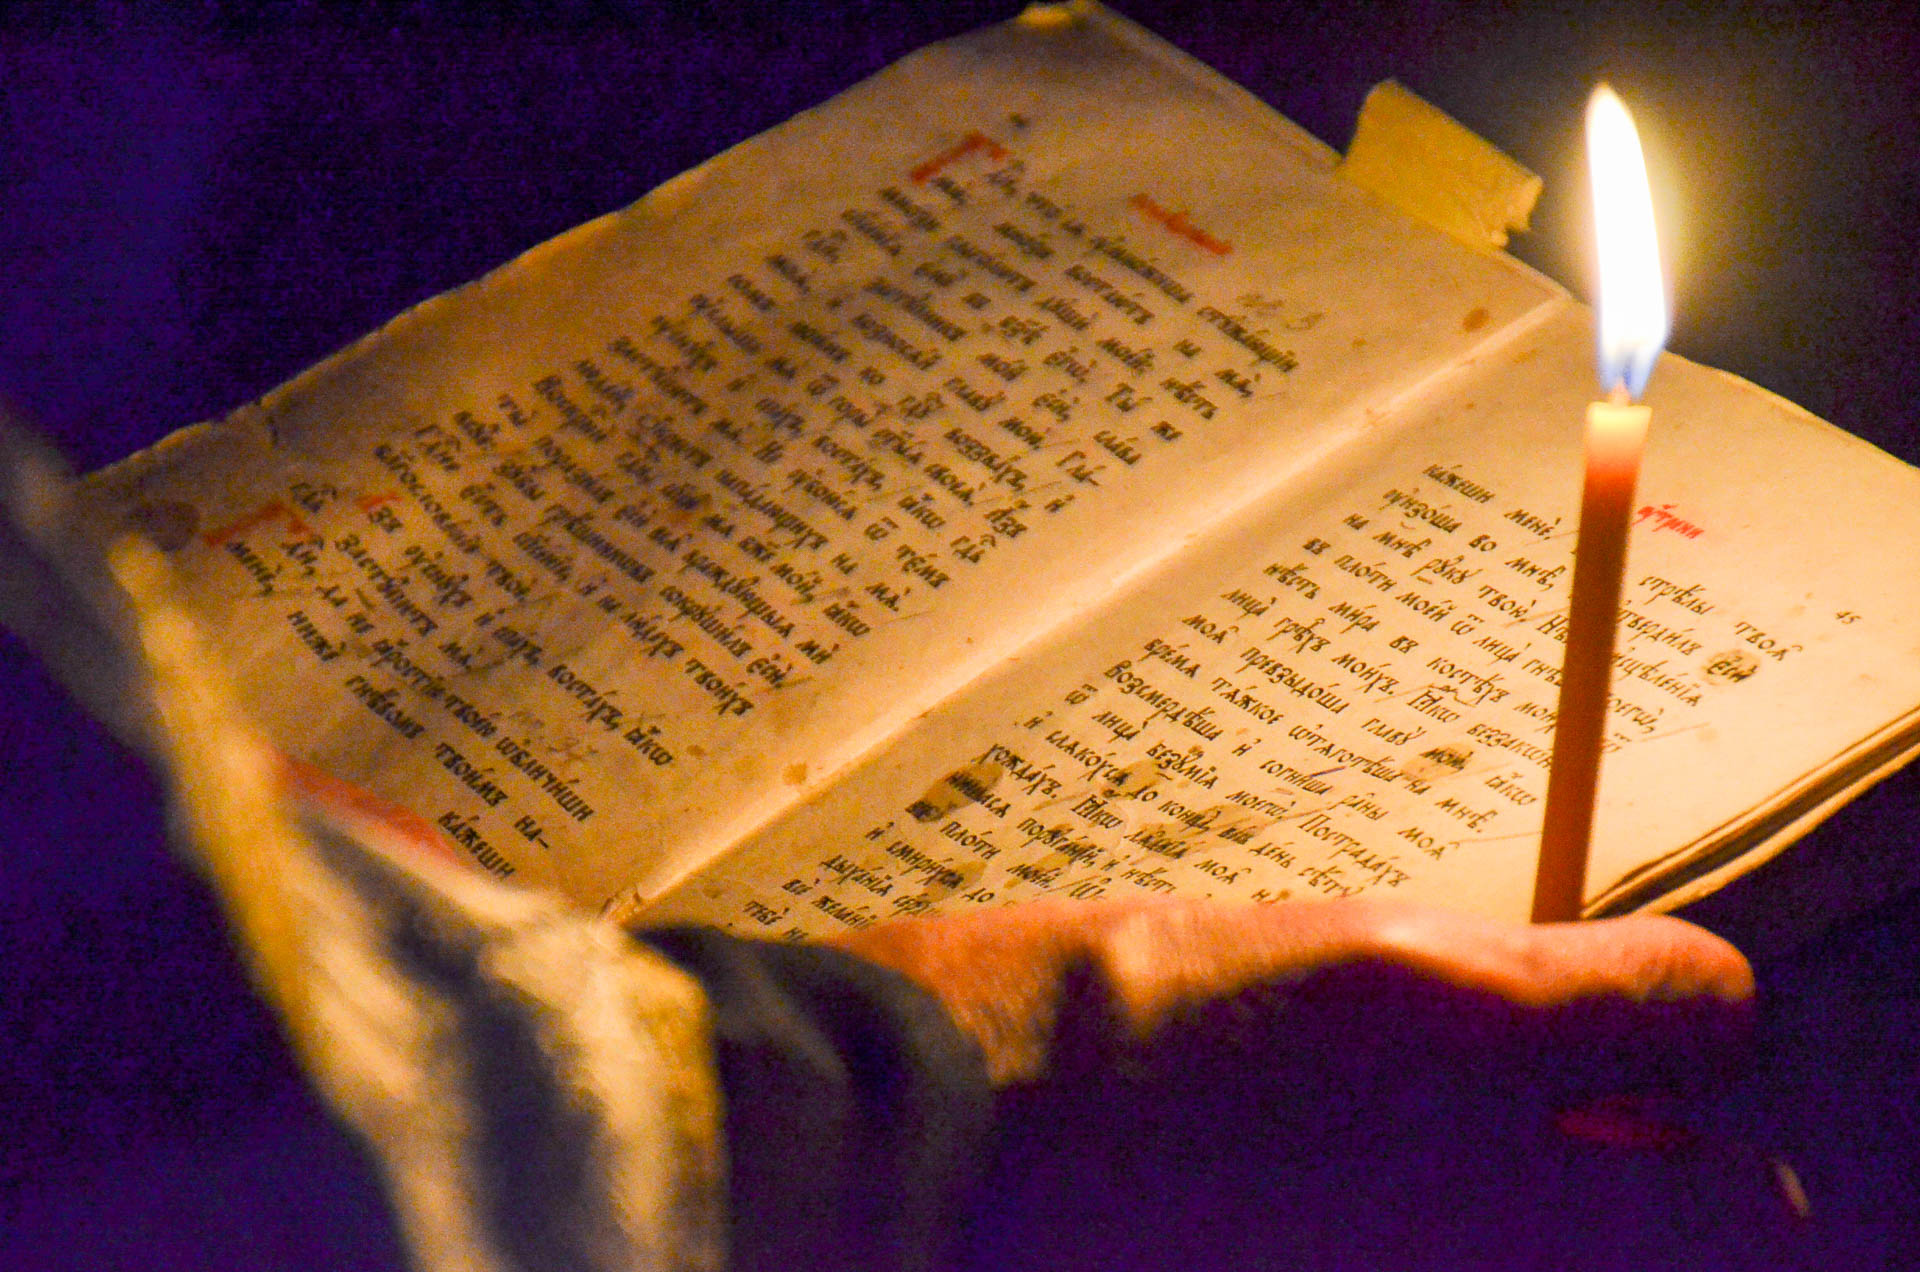 пс. 3
Гдⷭ҇и, что́ сѧ ᲂу҆мно́жиша стꙋжа́ющїи
мѝ, мно́зи востаю́тъ на мѧ̀,
мно́зи глаго́лютъ дꙋшѝ мое́й: нѣ́сть
спⷭ҇нїѧ є҆мꙋ̀ въ бз҃ѣ є҆гѡ̀. Ты́ же
гдⷭ҇и, застꙋ́пникъ мо́й є҆сѝ, сла́ва
моѧ̀, и҆ возносѧ́й главꙋ̀ мою̀. Гла́-
сомъ мои́мъ ко гдⷭ҇ꙋ воззва́хъ, и҆
ᲂу҆слы́ша мѧ̀ ѿ горы̀ ст҃ы́ѧ своеѧ̀. А҆́зъ
ᲂу҆снꙋ́хъ и҆ спа́хъ, воста́хъ, ꙗ҆́кѡ гдⷭ҇ь
застꙋ́питъ мѧ̀. Не ᲂу҆бою́сѧ ѿ те́мъ
люде́й, ѡ҆́крестъ напа́дающихъ на мѧ̀.
Воскр҃нѝ гдⷭ҇и, сп҃сѝ мѧ̀ бж҃е мо́й, ꙗ҆́кѡ
ты̀ порази́лъ є҆сѝ всѧ̑ враждꙋ́ющыѧ мѝ
всꙋ́е, зꙋ́бы грѣ́шникѡвъ сокрꙋши́лъ є҆сѝ.
Гдⷭ҇не є҆́сть спⷭ҇нїе, и҆ на лю́дехъ твои́хъ
твоѐ.
А҆́зъ ᲂу҆снꙋ́хъ и҆ спа́хъ, воста́хъ, ꙗ҆́кѡ
гдⷭ҇ь застꙋ́питъ мѧ̀.
пс. 37
Гдⷭ҇и, да не ꙗ҆́ростїю твое́ю ѡ҆бличи́ши
менѐ, нижѐ гнѣ́вомъ твои́мъ на-
ка́жеши
ᲂу҆́трени
45
ка́жеши менѐ. стрѣ́лы твоѧ̑
ᲂу҆нзо́ша во мнѣ̀, ᲂу҆тверди́лъ є҆сѝ
на мнѣ̀ рꙋ́кꙋ твою̀. Нѣ́сть и҆сцѣле́нїѧ
въ пло́ти мое́й ѿ лица̀ гнѣ́ва твоегѡ̀,
нѣ́сть ми́ра въ косте́хъ мои́хъ ѿ
лица̀ грѣ̑хъ мои́хъ. Ꙗ҆́кѡ беззакѡ́нїѧ
моѧ̑ превзыдо́ша главꙋ̀ мою̀, ꙗ҆́кѡ
бре́мѧ тѧ́жкое ѡ҆тѧготѣ́ша на мнѣ̀.
Возсмердѣ́ша и҆ согни́ша ра̑ны моѧ̑
ѿ лица̀ безꙋ́мїѧ моегѡ̀. Пострада́хъ
и҆ слѧко́хсѧ до конца̀, ве́сь де́нь сѣ́тꙋѧ
хожда́хъ. Ꙗ҆́кѡ лѧ́двїѧ моѧ̑
порꙋга́нїй, и҆ нѣ́сть
пло́ти мое́й.
и҆ смири́хсѧ до